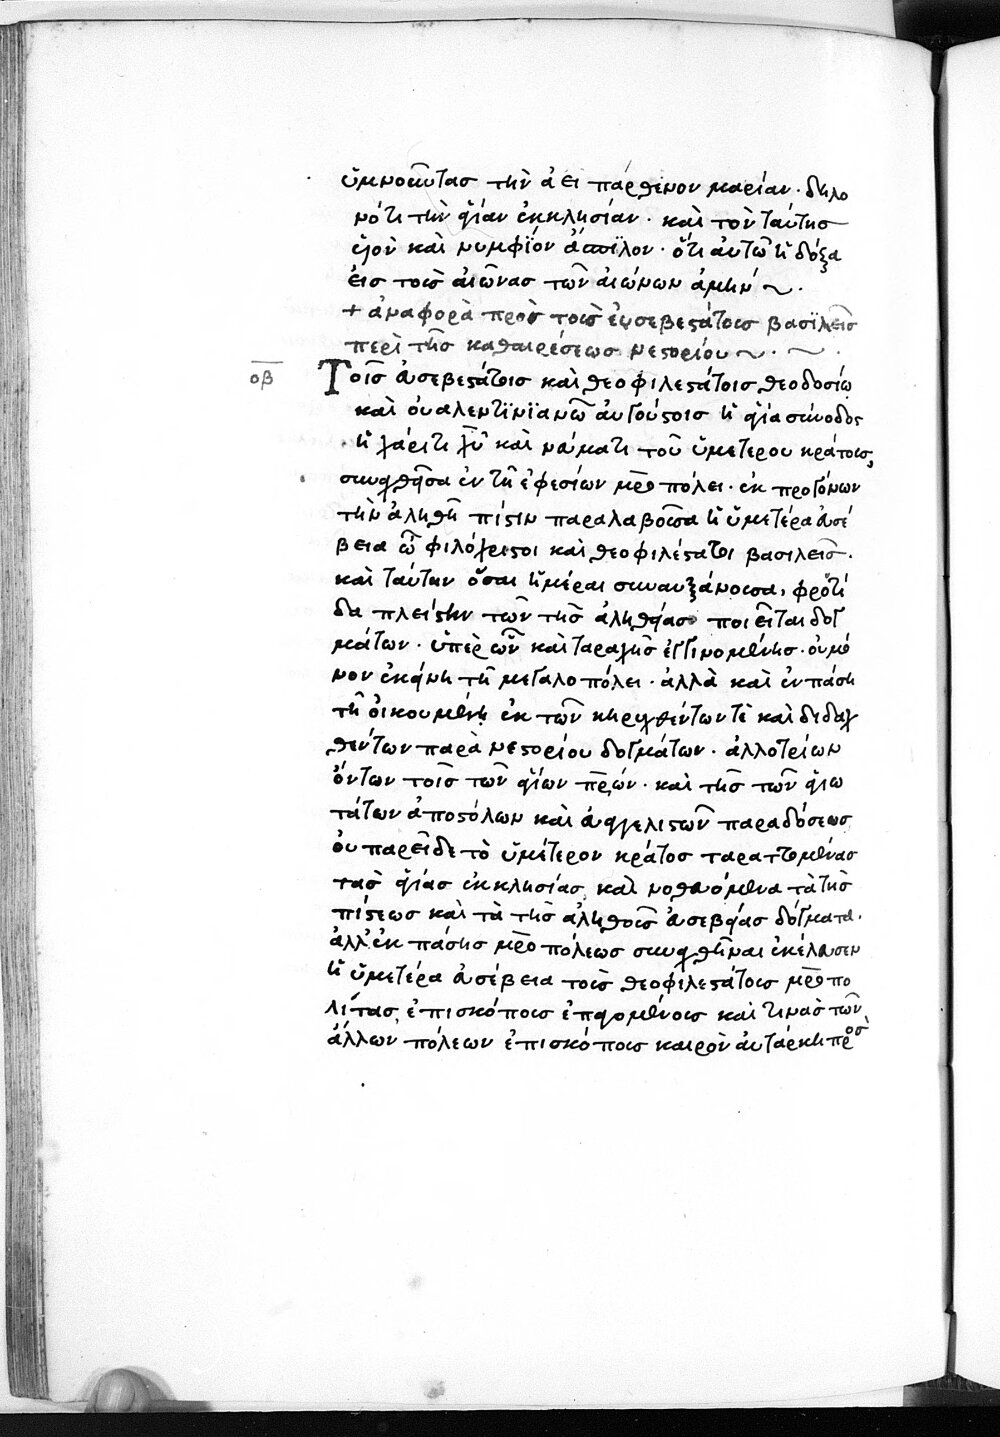 ὑμνοῦντας τὴν ἀεὶ πάρθενον μαρίαν· δηλο
νότι τὴν ἁγίαν ἐκκλησίαν· καὶ τὸν ταύτης
υἱὸν καὶ νυμφίον ἄσπιλον· ὅτι αὐτῶ ἡ δόξα
εἰς τοὺς αἰῶνας τῶν αἰώνων ἀμήν ~·
+ ἀναφορὰ πρὸς τοὺς εὐσεβεστάτους βασϊλεῖς
περὶ τῆς καθαιρέσεως νεστορίου ~· ~·
οβ Τοῖς εὐσεβεστάτοις καὶ θεοφιλεστάτοις θεοδοσίω
καὶ οὐαλεντϊνϊανῶ αὐγούστοις ἡ ἁγία σύνοδος
ἡ χάριτι χυ καὶ νεύματι τοῦ ὑμετέρου κράτους,
συναχθεῖσα ἐν τῆ ἐφεσίων μροπόλει· ἐκ προγόνων
τὴν ἀληθῆ πίστιν παραλαβοῦσα ἡ ὑμετέρα εὐσέ
βεια ὦ φιλόχριστοι καὶ θεοφιλέστατοι βασιλεῖς·
καὶ ταύτην ὅσαι ἡμέραι συναυξάνουσα, φροντί
δα πλείστην τῶν τῆς ἀληθείας ποιεῖται δογ
μάτων· ὑπὲρ ὧν καὶ ταραχῆς ἐγγινομένης· οὐ μό
νον ἐκείνη τῆ μεγαλοπόλει· ἀλλὰ καὶ ἐν πάση
τῆ οἰκουμένη ἐκ τῶν κηρυχθέντων τὲ καὶ διδαχ
θέντων παρὰ νεστορίου δογμάτων· ἀλλοτρίων
ὄντων τοῖς τῶν ἁγίων πρων· καὶ τῆς τῶν ἁγιω
τάτων ἀποστόλων καὶ εὐαγγελιστῶν παραδόσεως
οὐ παρεῖδε τὸ ὑμέτερον κράτος ταραττομένας
τὰς ἁγίας ἐκκλησίας, καὶ νοθευόμενα τὰ τῆς
πίστεως καὶ τὰ τῆς ἀληθοῦς εὐσεβείας δόγματα·
ἀλλ' ἐκ πάσης μροπόλεως συναχθῆναι ἐκέλευσεν
ἡ ὑμετέρα εὐσέβεια τοὺς θεοφιλεστάτους μροπο
λίτας, ἐπισκόπους ἐπαγομένους καὶ τινὰς τῶν
ἄλλων πόλεων ἐπισκόπους καιρὸν αὐτάρκη πρὸς